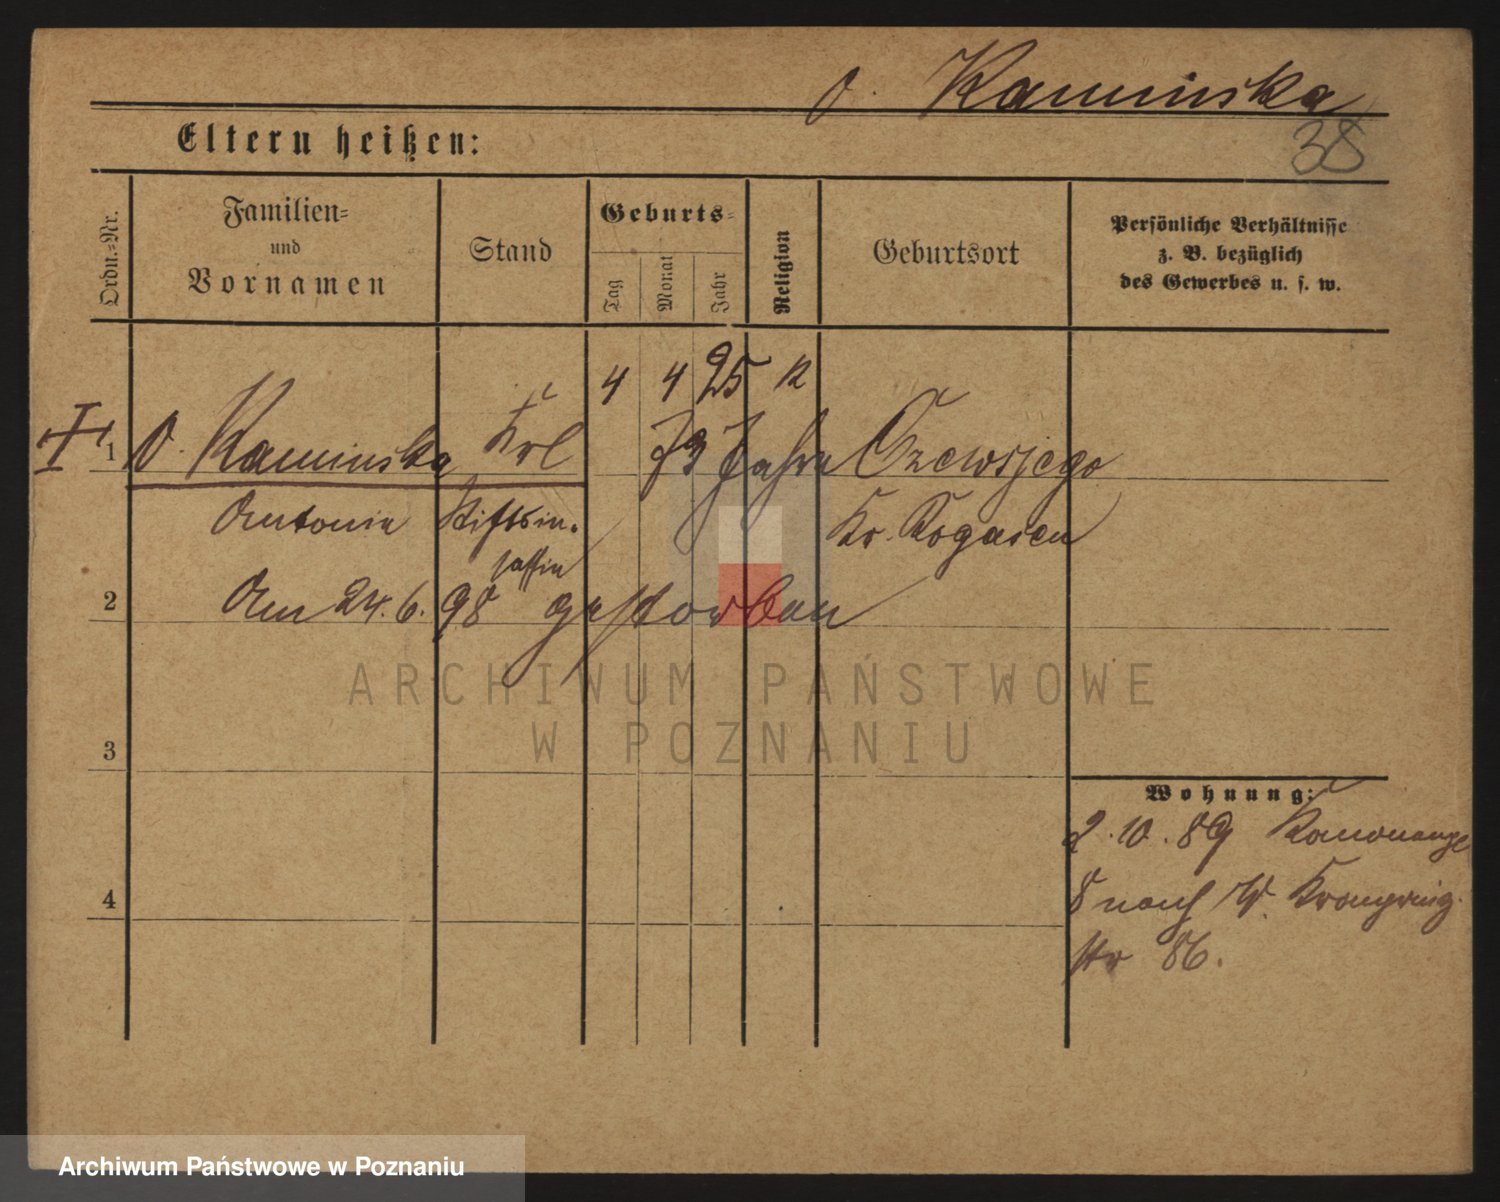 v. Kaminska
38
Eltern heißen:
Ordn.-Nr.
Familien-
und
Vornamen
Stand
Geburts-
Tag
Monat
Jahr
Religion
Geburtsort
Persönliche Verhältnisse
z. B. bezüglich
des Gewerbes u. s. w.
4 4 25 k
1 v. Kaminska Frl 73 Jahre Czewojego
Antonie Stiftsin-
sassin
Kr. Rogasen
2 Am 24.6.98 gestorben
ARCHIWUM PAŃSTWOWE
W POZNANIU
3
Wohnung:
2.10.89 Kanonenpl
8 nach W. Kronprinz
str 86.
4
Archiwum Państwowe w Poznaniu